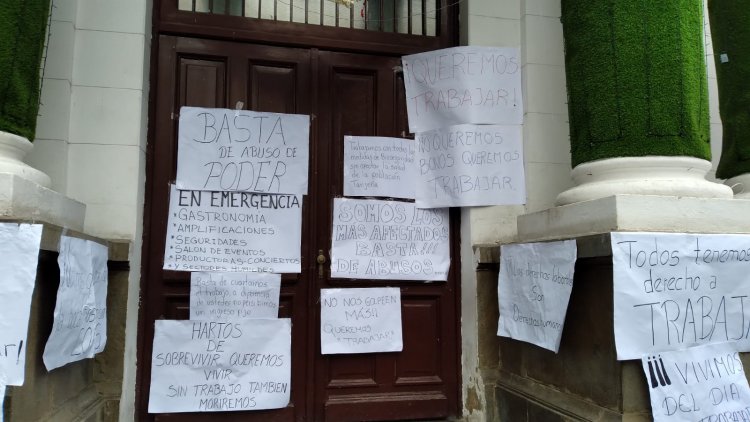 BASTA
DE ABUSO DE
PODER
EN EMERGENCIA
*GASTRONOMIA
*AMPLIFICACIONES
*SEGURIDADES
*SALON DE EVENTOS
*PRODUCTORAS-CONCIERTOS
*Y SECTORES HUMILDES
Basta de cuartarnos
el trabajo a diferencia
de ustedes no percibimos
un ingreso fijo
HARTOS DE
SOBREVIVIR QUEREMOS
VIVIR
SIN TRABAJO TAMBIEN
MORIREMOS
¡QUEREMOS
TRABAJAR!
NO QUEREMOS
BONOS QUEREMOS
TRABAJAR.
Trabajamos con todas las
medidas de Bioseguridad
la salud
de la población
Tarijeña
SOMOS LOS
MAS AFECTADOS
BASTA!!!
DE ABUSOS....
NO NOS GOLPEEN
MÁS!!
QUEREMOS
*TRABAJAR
Los derechos laborales
Son
Derechos humanos
Todos tenemos
derecho a
TRABAJA
¡¡¡ VIVIMOS
DEL DIA